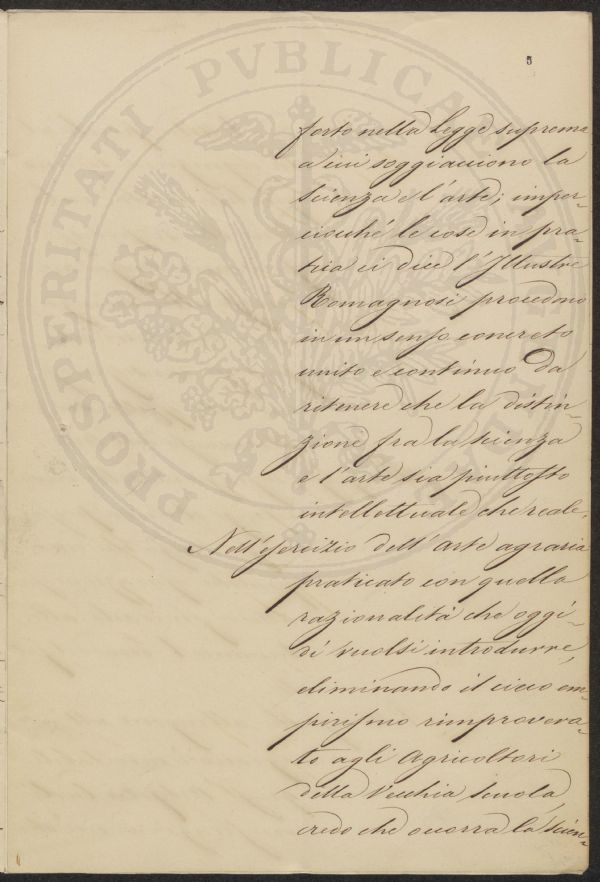 5
forto nella Legge suprema
a cui soggiacciono la
scienza e l'arte; imper-
ciocché le cose in pra-
tica ci dice l'Illustre
Romagnosi procedono
in un senso concreto
unito e continuo da
ritenere che la distin-
zione fra la scienza
e l'arte sia piuttosto
intellettuale che reale.
Nell'esercizio dell'arte agraria
praticato con quella
razionalità che oggi-
dì vuolsi introdurre,
eliminando il cieco em-
pirismo rimprovera-
to agli Agricoltori
della Vecchia scuola,
credo che occorra la scien-
PROSPERITATI PVBLICAE